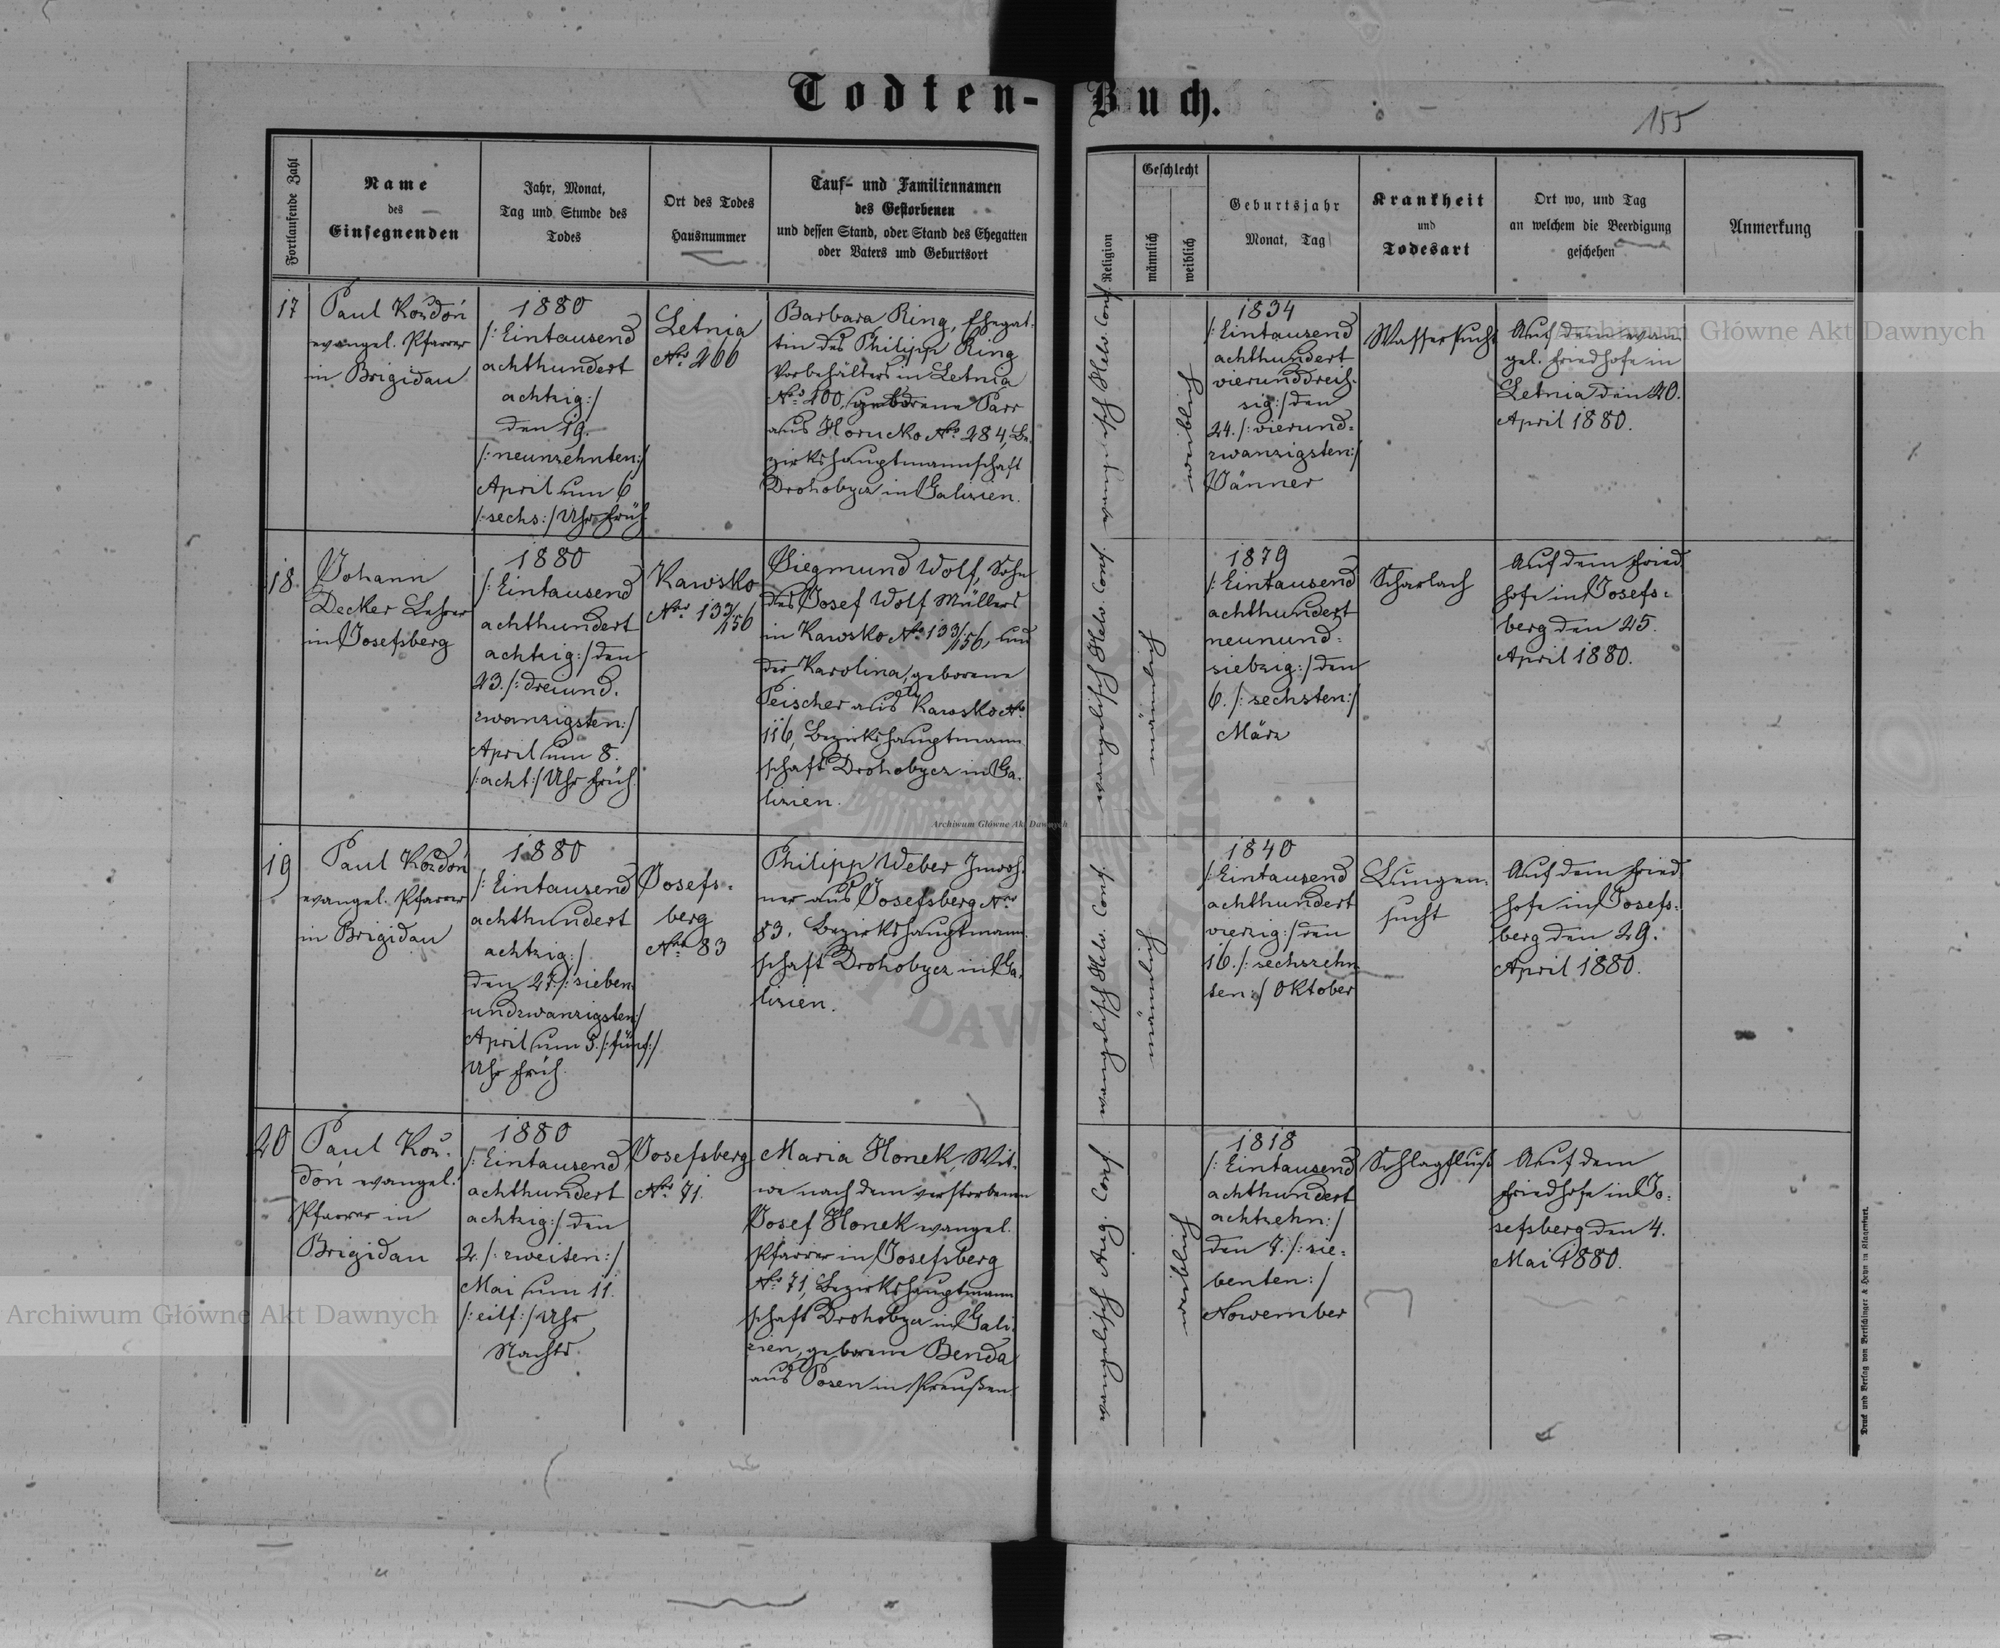 Todten-Buch.
155
Fortlaufende Zahl
Name
des
Einsegnenden
Jahr, Monat,
Tag und Stunde des
Todes
Ort des Todes
Hausnummer
Tauf- und Familiennamen
des Gestorbenen
und dessen Stand, oder Stand des Ehegatten
oder Vaters und Geburtsort
Religion
Geschlecht
männlich
weiblich
Geburtsjahr
Monat, Tag
Krankheit
und
Todesart
Ort wo, und Tag
an welchem die Beerdigung
geschehen
Anmerkung
17
Paul Kozdoń
evangel. Pfarrer
in Brigidau
1880
/: Eintausend
achthundert
achtzig :/
den 19.
/: neunzehnten :/
April um 6
/: sechs :/ Uhr früh
Letnia
Nro 266
Barbara Ring, Ehegat-
tin des Philipp Ring
Vorbehälters in Letnia
Nro 100, geborene Parr
aus Horucko Nro 284, Be-
zirkshauptmannschaft
Drohobycz in Galizien.
evangelisch Helv. Conf.
weiblich
1834
/: Eintausend
achthundert
vierunddreis-
sig :/ den
24. /: vierund-
zwanzigsten :/
Jänner
Wassersucht
Auf dem evan
gel. Friedhofe in
Letnia den 20.
April 1880.
18.
Johann
Decker Lehrer
in Josefsberg
1880
/: Eintausend
achthundert
achtzig :/ den
23. /: dreiund-
zwanzigsten :/
April um 8.
/: acht :/ Uhr früh.
Kawsko
Nro 133/156
Siegmund Wolf, Sohn
des Josef Wolf Müllers
in Kawsko Nro 133/156, und
der Karolina, geborene
Peischer aus Kawsko Nro
116, Bezirkshauptmann
schaft Drohobycz in Ga-
lizien.
evangelisch Helv. Conf.
männlich
1879
/: Eintausend
achthundert
neunund-
siebzig :/ den
6. /: sechsten :/
März
Scharlach
Auf dem Fried
hofe in Josefs-
berg den 25.
April 1880.
19
Paul Kozdoń
evangel. Pfarrer
in Brigidau
1880
/: Eintausend
achthundert
achtzig :/
den 27. /: sieben
undzwanzigsten :/
April um 5. /: fünf :/
Uhr früh.
Josefs-
berg
Nro 83
Philipp Weber Inwoh-
ner aus Josefsberg Nro
83, Bezirkshauptmann-
schaft Drohobycz in Ga-
lizien.
evangelisch Helv. Conf.
männlich
1840
/: Eintausend
achthundert
vierzig :/ den
16. /: sechszehn
ten :/ Oktober
Lungen-
sucht
Auf dem Fried
hofe in Josefs-
berg den 29.
April 1880.
20
Paul Koz-
doń evangel.
Pfarrer in
Brigidau
1880
/: Eintausend
achthundert
achtzig :/ den
2. /: zweiten :/
Mai um 11.
/: eilf :/ Uhr
Nachts.
Josefsberg
Nro 71.
Maria Honek, Wit-
we nach dem verstorbenen
Josef Honek evangel.
Pfarrer in Josefsberg
Nro 71, Bezirkshauptmann
schaft Drohobycz in Gali-
zien, geborene Benda
aus Posen in Preußen.
evangelisch Aug. Conf.
weiblich
1818
/: Eintausend
achthundert
achtzehn :/
den 7. /: sie-
benten :/
November
Schlagfluß
Auf dem
Friedhofe in Jo-
sefsberg den 4.
Mai 1880.
Druck und Verlag von Bertschinger & Heyn in Klagenfurt.
Archiwum Główne Akt Dawnych
Archiwum Główne Akt Dawnych
Archiwum Główne Akt Dawnych